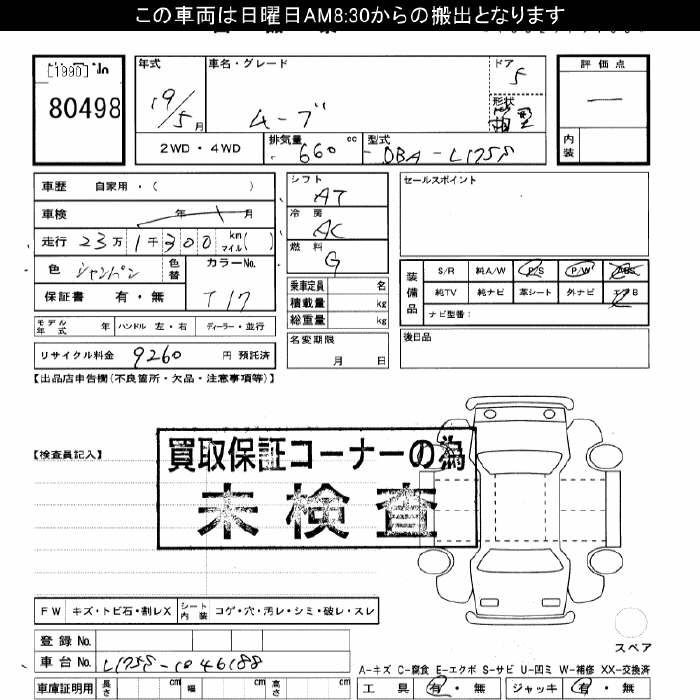 この車両は日曜日AM8:30からの搬出となります
[1990]
80498
年式
19/5月
車名・グレード
ムーブ
ドア
5
形状
評価点
—
内装
2WD・4WD
排気量
660 cc
型式
DBA-L175S
車歴 自家用・( )
車検 年 月
走行 23万1千300 km マイル( )
色 シャンパン 色替 カラーNo.
T17
保証書 有・無
モデル年式 年 ハンドル 左・右 ディーラー・並行
リサイクル料金 9260 円 預託済
シフト
AT
冷房
AC
燃料
G
乗車定員 名
積載量 kg
総重量 kg
名変期限
月 日
セールスポイント
装備品
S/R 純A/W P/S P/W ABS
純TV 純ナビ 革シート 外ナビ エアB
ナビ型番:
後日品
【出品店申告欄(不良箇所・欠品・注意事項等)】
【検査員記入】
買取保証コーナーの為
未検査
FW キズ・トビ石・割レX シート内装 コゲ・穴・汚レ・シミ・破レ・スレ
スペア
登録No.
車台No. L175S-1046188
A-キズ C-腐食 E-エクボ S-サビ U-凹ミ W-補修 XX-交換済
車庫証明用 長さ cm 幅 cm 高さ cm
工具 有・無 ジャッキ 有・無